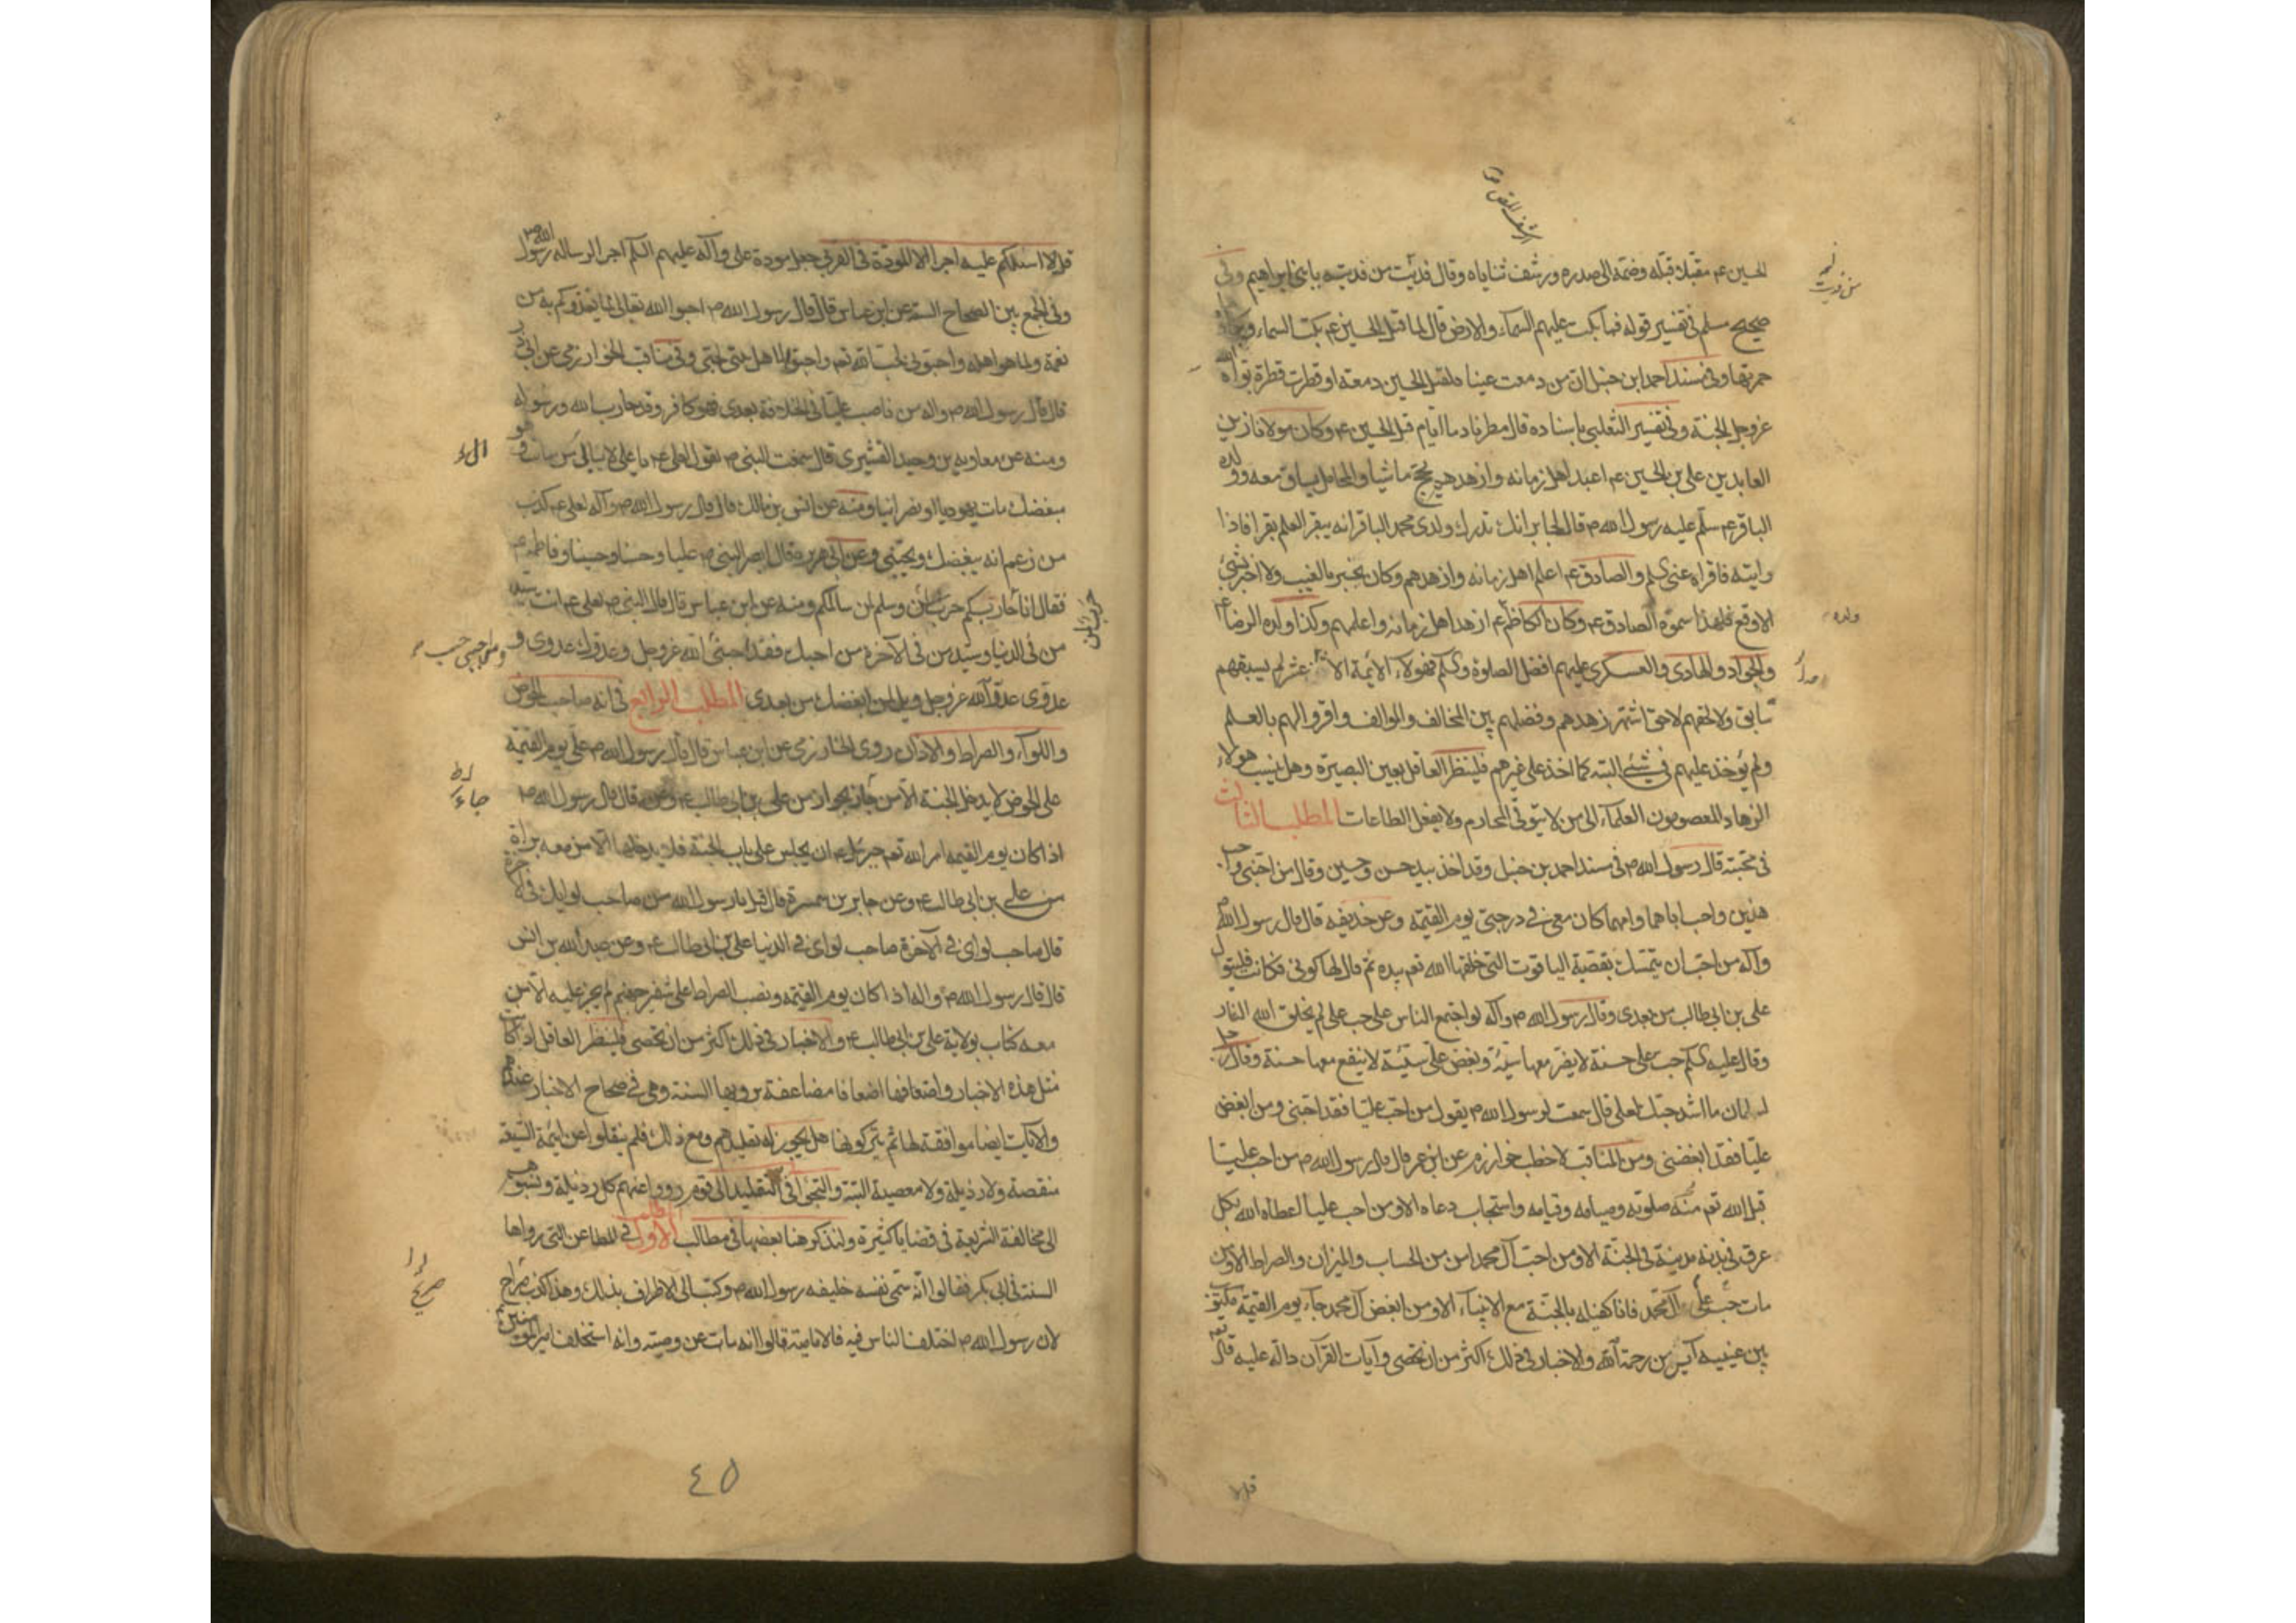 الرشف المص ١٢
الحسين ع م مقبلا قبله وضمه الى صدره ورشف ثناياه وقال فديت من فديته بابني ابراهيم وفي
صحيح مسلم في تفسير قوله فما بكت عليهم السماء والارض قال لما قتل الحسين ع م بكت السماء وبكاؤها
حمرتها وفي مسند احمد ابن حنبل ان من دمعت عيناه لقتل الحسين دمعة او قطرت قطرة بوأه الله
عز وجل الجنة وفي تفسير الثعلبي باسناده قال مطرنا دما ايام قتل الحسين ع م وكان مولانا زين
العابدين علي بن الحسين ع م اعبد اهل زمانه وازهدهم يحج ماشيا والمحامل يساق معه وولده
الباقر ع م سلم عليه رسول الله ص قال لجابر انك تدرك ولدي محمد الباقر انه يبقر العلم بقرا فاذا
رايته فاقراه عني السلم والصادق ع م اعلم اهل زمانه وازهدهم وكان يخبر بالغيب ولا اخبر بشئ
الا وقع فلهذا سموه الصادق ع م وكان الكاظم ع م ازهد اهل زمانه واعلمهم وكذا ولده الرضا ع م
ولده
والجواد والهادي والعسكري عليهم افضل الصلوة والسلم فهولاء الائمة الاثنا عشر لم يسبقهم
سابق ولا لحقهم لاحق اشتهر زهدهم وفضلهم بين المخالف والموالف واقروا لهم بالعلم
ولم يؤخذ عليهم في شئ البته كما اخذ على غيرهم فلينظر العاقل بعين البصيرة وهل ينسب هولاء
الزهاد المعصومون العلماء الى من لا يتوقى المحارم ولا يفعل الطاعات المطلب الثالث
في محبته قال رسول الله ص في مسند احمد بن حنبل وقد اخذ بيد حسن وحسين وقال من احبني واحب
هذين واحب اباهما وامهما كان معي في درجتي يوم القيمة وعن حذيفه قال قال رسول الله ص
وآله من احب ان يتمسك بقصبة الياقوت التي خلقها الله تعم بيده ثم قال لها كوني فكانت فليتول
علي بن ابي طالب من بعدي وقال رسول الله ص وآله لو اجتمع الناس على حب علي لم يخلق الله النار
وقال عليه السلم حب علي حسنة لا يضر معها سيئة وبغض علي سيئة لا ينفع معها حسنة وقال رجل
لسلمان ما اشد حبك لعلي قال سمعت لرسول الله ص يقول من احب عليا فقد احبني ومن ابغض
عليا فقد ابغضني ومن المناقب لاخطب خوارزم عن ابن عمر قال قال رسول الله ص من احب عليا
قبل الله تعم منه صلوته وصيامه وقيامه واستجاب دعاه الا ومن احب عليا اعطاه الله بكل
عرق في بدنه مدينة في الجنة الا ومن احب آل محمد امن من الحساب والميزان والصراط الا ومن
مات على حب آل محمد فانا كفيله بالجنة مع الانبياء الا ومن ابغض آل محمد جاء يوم القيمة مكتوب
بين عينيه آيس من رحمة الله والاخبار في ذلك اكثر من ان تحصى وآيات القرآن دالة عليه قال تعم
قل لا
قل لا اسئلكم عليه اجرا الا المودة في القربى جعل مودة علي وآله عليهم السلم اجر الرسالة رسول الله ص
وفي الجمع بين الصحاح الستة عن ابن عباس قال قال رسول الله ص احبوا الله تعالى لما يغذوكم به من
نعمة ولما هو اهله واحبوني لحب الله تعم واحبوا اهل بيتي لحبي وفي مناقب الخوارزمي عن ابي ذر
قال قال رسول الله ص واله من ناصب عليا في الخلافة بعدي فهو كافر وقد حارب الله ورسوله
ومنه عن معاويه بن وحيد القشيري قال سمعت النبي ص يقول لعلي ع م يا علي لا يبالي من مات وهو
يبغضك مات يهوديا او نصرانيا ومنه عن انس بن مالك قال قال رسول الله ص وآله لعلي ع م كذب
من زعم انه يبغضك ويحبني وعن ابي هريرة قال ابصر النبي ص عليا وحسنا وحسينا وفاطمه ع م
فقال انا حرب لمن حاربكم وسلم لمن سالمكم ومنه عن ابن عباس قال قال النبي ص لعلي ع م انت سيد
حرب لمن
من في الدنيا وسيد من في الآخرة من احبك فقد احبني الله عز وجل وعدوك عدوي و
عدوي عدو الله عز وجل ويل لمن ابغضك من بعدي المطلب الرابع في انه صاحب الحوض
واللواء والصراط والاذان روى الخوارزمي عن ابن عباس قال قال رسول الله ص علي يوم القيمة
على الحوض لا يدخل الجنة الا من جاء بجواز من علي بن ابي طالب ع م وعنه قال قال رسول الله ص
اذا كان يوم القيمة امر الله تعم جبرئيل ع م ان يجلس على باب الجنة فلا يدخلها الا من معه براة
من علي بن ابي طالب ع م وعن جابر بن سمرة قال قيل يا رسول الله من صاحب لوايك في الاخرة
قال صاحب لواي في الآخرة صاحب لواي في الدنيا علي بن ابي طالب ع م وعن عبد الله بن انس
قال قال رسول الله ص واله اذا كان يوم القيمة ونصب الصراط على شفير جهنم لم يجز عليه الا من
معه كتاب بولاية علي بن ابي طالب ع م والاخبار في ذلك اكثر من ان تحصى فلينظر العاقل اذا كان
مثل هذه الاخبار واضعافها اضعافا مضاعفة يرويها السنة وهي في صحاح الاخبار عندهم
والآيات ايضا موافقة لها ثم يتركونها هل يجوز له تقليدهم ومع ذلك فلم ينقلوا عن ائمة الشيعة
منقصة ولا رذيلة ولا معصية البتة والتجئ في التقليد الى قوم رووا عنهم كل رذيلة ونسبوهم
الى مخالفة الشريعة في قضايا كثيرة ولنذكر هنا بعضها في مطالب الاول في المطاعن التي رواها
السنة في ابي بكر فقالوا انه سمى نفسه خليفه رسول الله ص وكتب الى الاطراف بذلك وهذا كذب صراح
لان رسول الله ص اختلف الناس فيه فالامامية قالوا انه مات عن وصية وانه استخلف امير المومنين ع م
٤٥